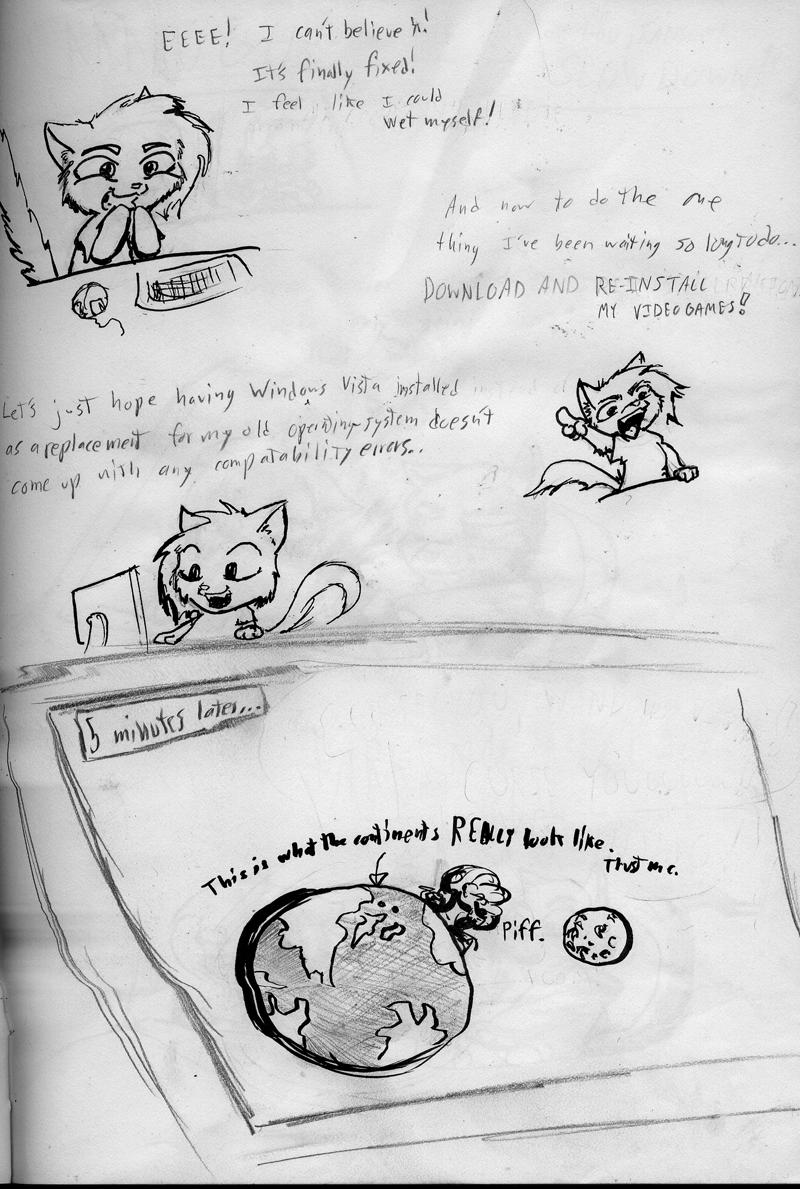 EEEE! I can't believe it!
It's finally fixed!
I feel like I could
wet myself!
And now to do the one
thing I've been waiting so long to do...
DOWNLOAD AND RE-INSTALL
MY VIDEO GAMES!
Let's just hope having Windows Vista installed
as a replacement for my old operating system doesn't
come up with any compatability errors..
5 minutes later...
This is what the continents REALLY look like.
Trust me.
Piff.